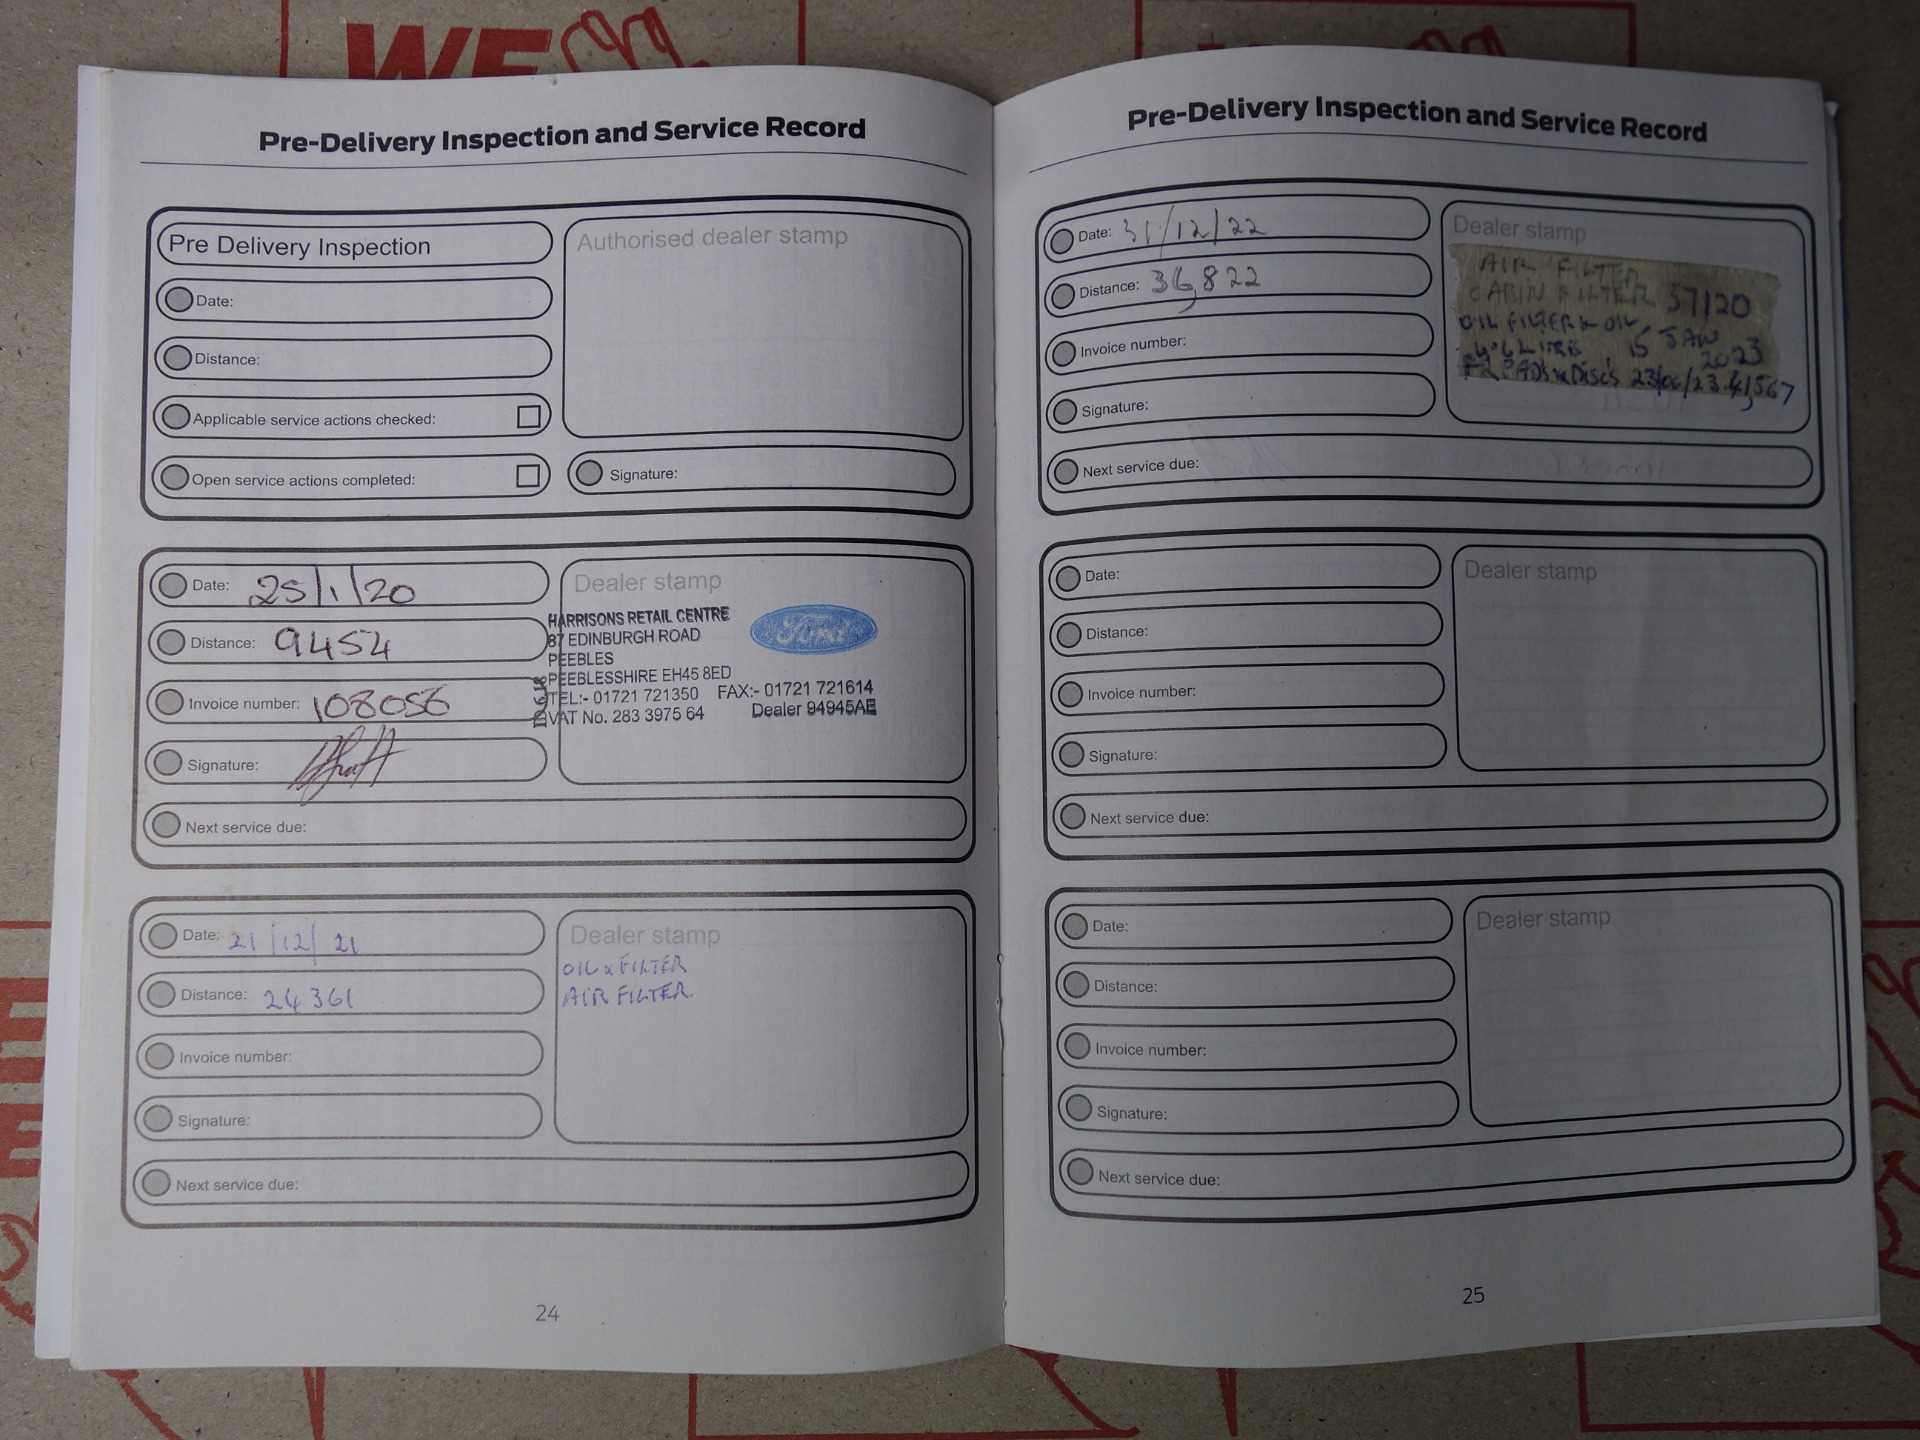 WE
Pre-Delivery Inspection and Service Record
Pre Delivery Inspection
Date:
Distance:
Applicable service actions checked:
Open service actions completed:
Authorised dealer stamp
Signature:
Date: 25/1/20
Distance: 9454
Invoice number: 108056
Signature:
Next service due:
Dealer stamp
HARRISONS RETAIL CENTRE
87 EDINBURGH ROAD
PEEBLES
PEEBLESSHIRE EH45 8ED
TEL:- 01721 721350 FAX:- 01721 721614
VAT No. 283 3975 64 Dealer 94945AE
Ford
Date: 21/12/21
Distance: 24361
Invoice number:
Signature:
Next service due:
Dealer stamp
OIL & FILTER
AIR FILTER
24
Pre-Delivery Inspection and Service Record
Date: 31/12/22
Distance: 36,822
Invoice number:
Signature:
Next service due:
Dealer stamp
AIR FILTER
CABIN FILTER 37120
OIL FILTER & OIL
15 JAN
2023
PADS & DISCS 23/06/23 41,567
Date:
Distance:
Invoice number:
Signature:
Next service due:
Dealer stamp
Date:
Distance:
Invoice number:
Signature:
Next service due:
Dealer stamp
25